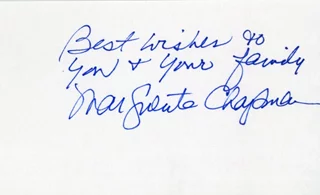 Best wishes to
you + your family
Marguerite Chapman